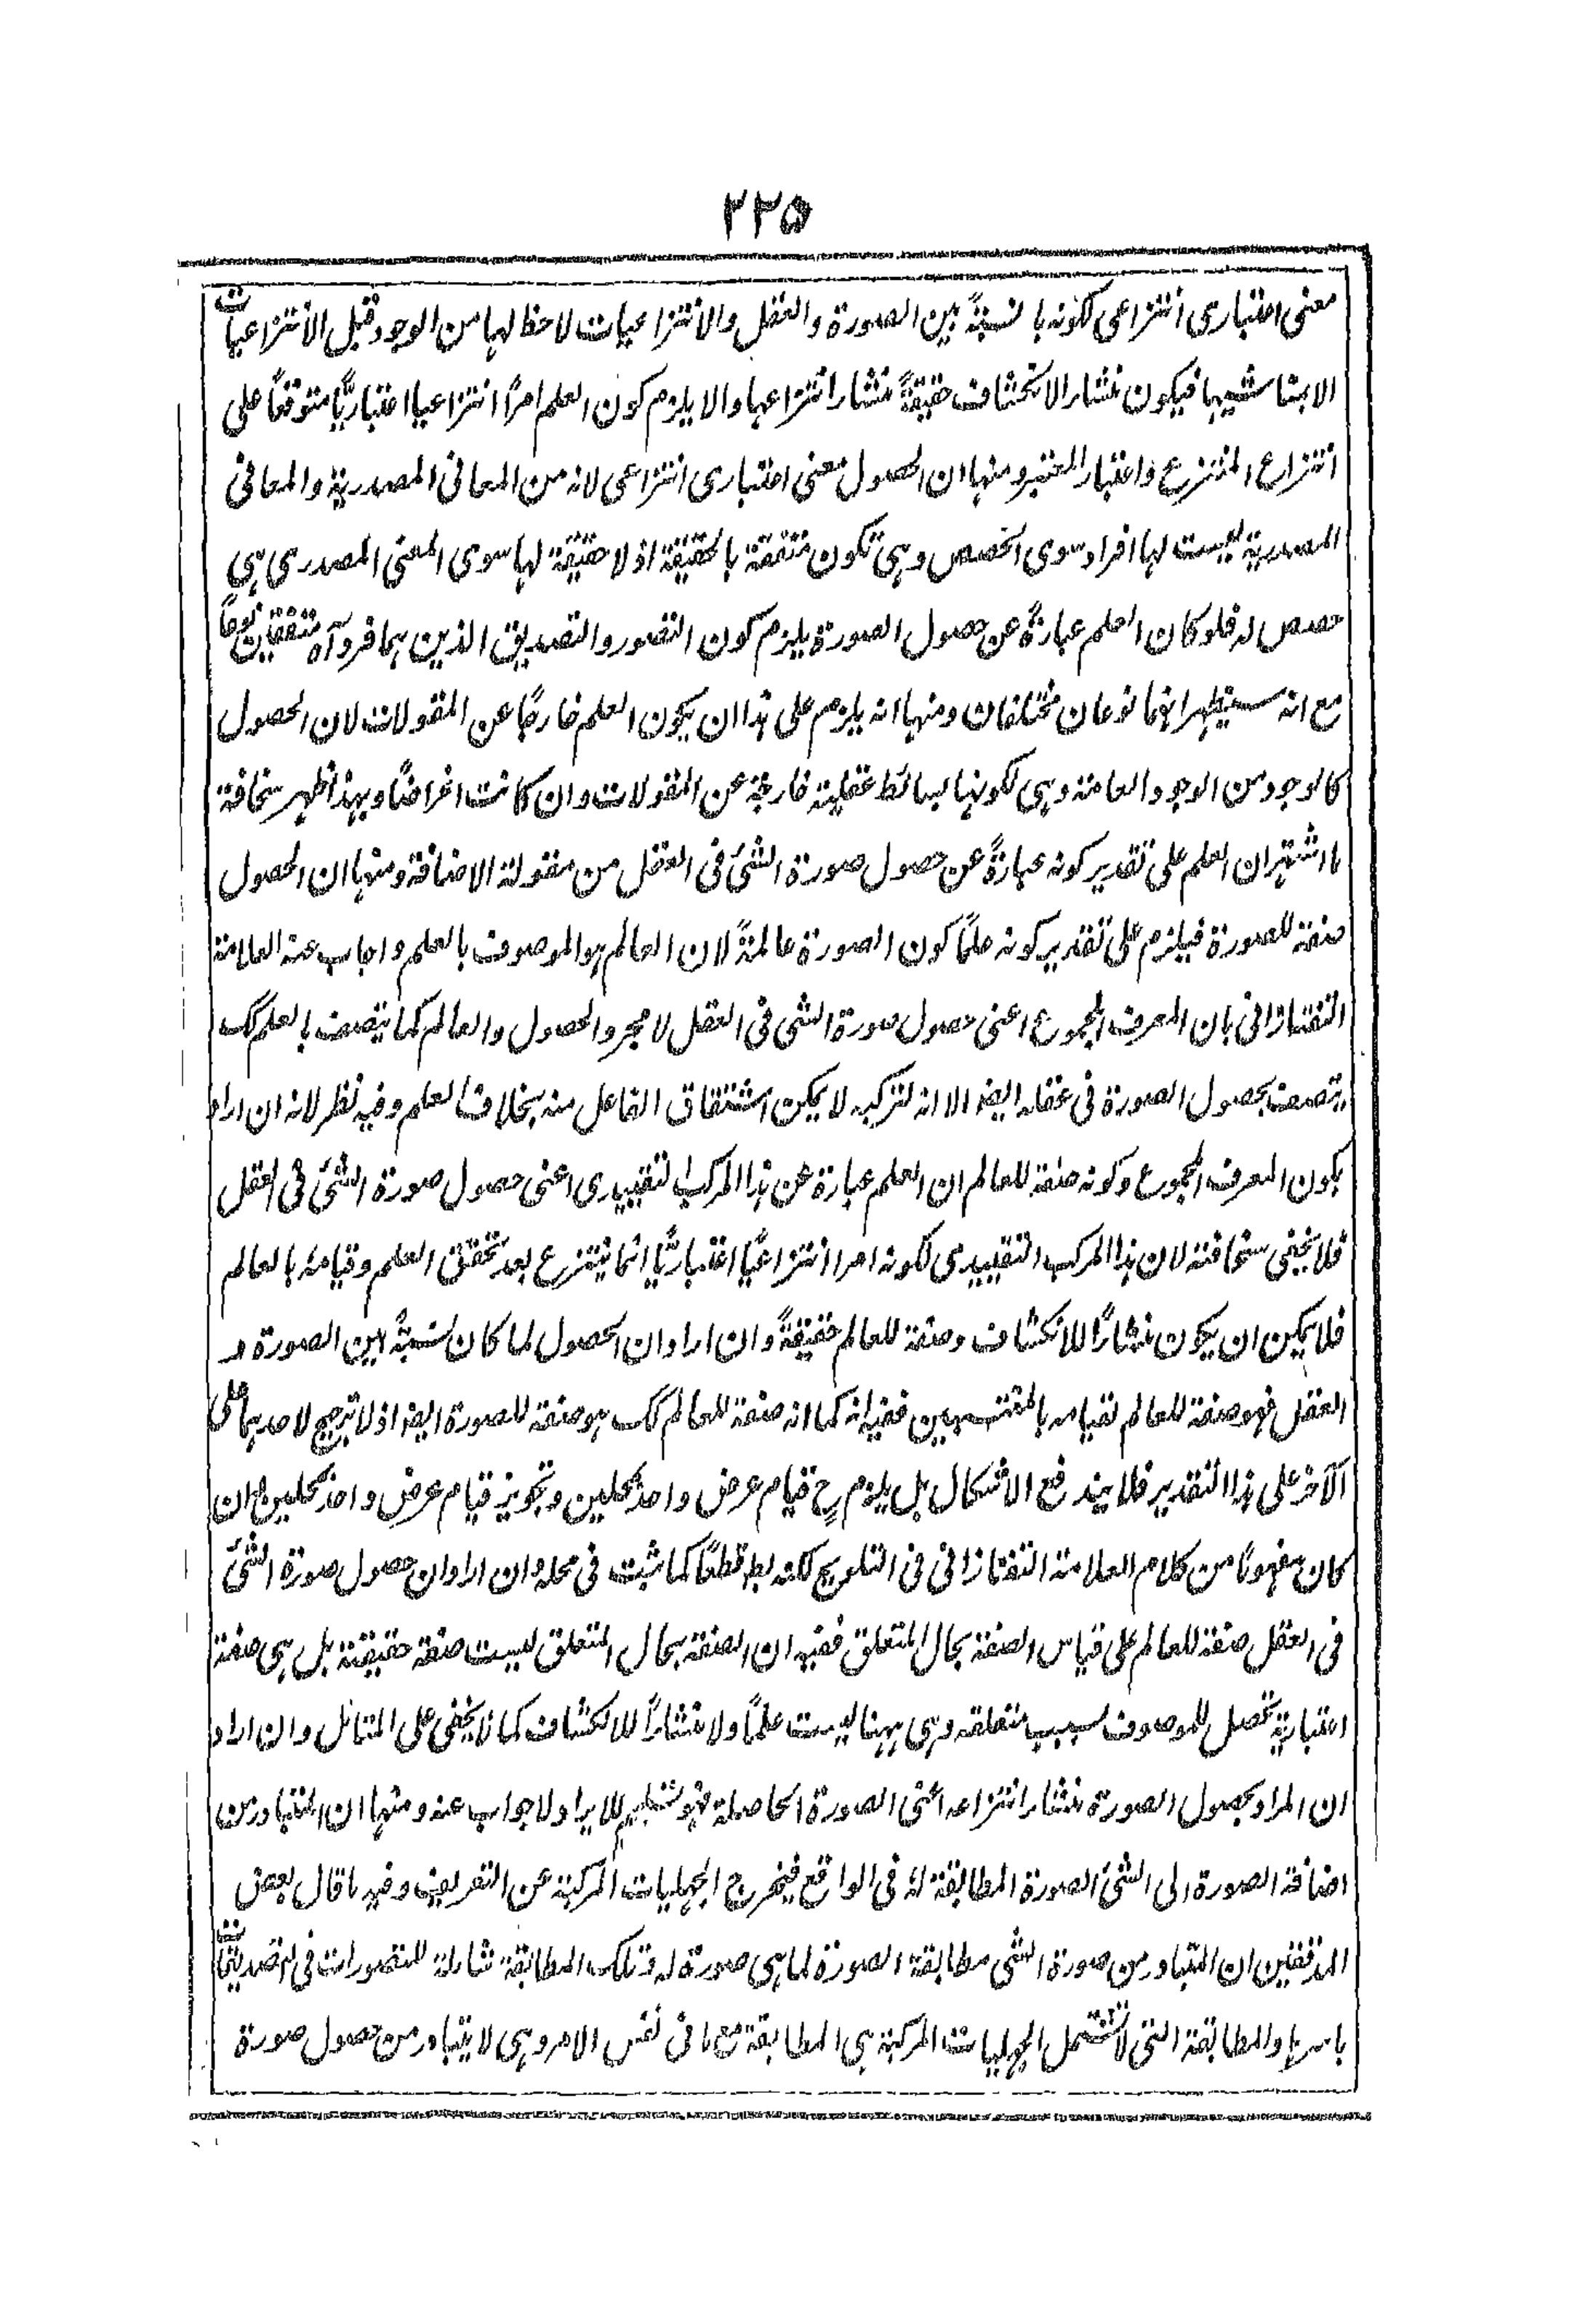 ٢٢٥
معنى اعتبارى انتزاعى لكونه بالنسبةً بين الصورة والعقل والانتزاعيات لاحظ لها من الوجود قبل الانتزاعيات
الا بمناشيها فيكون منشار الانكشاف حقيقةً منشار انتزاعها والا يلزم كون العلم امرًا انتزاعيا اعتباريًّا متوقفًا على
انتزاع المنتزع واعتبار المعتبر ومنها ان الحصول معنى اعتبارى انتزاعى لانه من المعانى المصدرية والمعانى
المصدرية ليست لها افراد سوى الحصص وهى تكون متفقة بالحقيقة اذ لا حقيقة لها سوى المعنى المصدرى هى
حصص له فلو كان العلم عبارةً عن حصول الصورة يلزم كون التصور والتصديق الذين هما فرداه متفقين نوعًا
مع انه سيظهر انهما نوعان مختلفان ومنها انه يلزم على هذا ان يكون العلم خارجًا عن المقولات لان الحصول
كالوجود من الوجود العامة وهى لكونها بسائط عقلية خارجة عن المقولات وان كانت اعراضًا وبهذا ظهر سخافة
ما اشتهر ان العلم على تقدير كونه عبارةً عن حصول صورة الشئ فى العقل من مقولة الاضافة ومنها ان الحصول
صفة للصورة فيلزم على تقدير كونه علمًا كون الصورة عالمةً لان العالم هو الموصوف بالعلم واجاب عنه العلامة
التفتازانى بان المعرف المجموع اعنى حصول صورة الشى فى العقل لا مجرد الحصول والعالم كما يتصف بالعلم كك
يتصف بحصول الصورة فى عقله ايضا الا انه لتركبه لا يمكن اشتقاق الفاعل منه بخلاف العلم وفيه نظر لانه ان اراد
بكون المعرف المجموع وكونه صفة للعالم ان العلم عبارة عن هذا المركب التقييدى اعنى حصول صورة الشئ فى العقل
فلا يخفى سخافته لان هذا المركب التقييدى لكونه امرا انتزاعيًّا اعتباريًّا انما ينتزع بعد تحقق العلم وقيامه بالعالم
فلا يمكن ان يكون منشارًا للانكشاف وصفة للعالم حقيقةً وان اراد ان الحصول لما كان نسبةً بين الصورة و
العقل فهو صفة للعالم لقيامه بالمنتسبين ففيه انه كما انه صفة للعالم كك هو صفة للصورة ايضا اذ لا ترجيح لاحدهما على
الآخر على هذا التقدير فلا يندفع الاشكال بل يلزم ح قيام عرض واحد بمحلين وتجويز قيام عرض واحد بمحلين وان
كان مفهومًا من كلام العلامة التفتازانى فى التلويح لكنه بط قطعًا كما ثبت فى محله وان اراد ان حصول صورة الشئ
فى العقل صفة للعالم على قياس الصفة بحال المتعلق ففيه ان الصفة بحال المتعلق ليست صفة حقيقة بل هى صفة
اعتبارية تحصل للموصوف بسبب متعلقه وهى ههنا ليست علمًا ولا منشارًا للانكشاف كما لا يخفى على المتامل وان اراد
ان المراد بحصول الصورة منشار انتزاعه اعنى الصورة الحاصلة فهو تسليم للايراد لا جواب عنه ومنها ان المتبادر من
اضافة الصورة الى الشئ الصورة المطابقة له فى الواقع فيخرج الجهليات المركبة عن التعريف وفيه ما قال بعض
المدققين ان المتبادر من صورة الشى مطابقة الصورة لما هى صورة له وتلك المطابقة شاملة للتصورات والتصديقات
باسرها والمطابقة التى لا تشتمل الجهليات المركبة هى المطابقة مع ما فى نفس الامر وهى لا يتبادر من حصول صورة